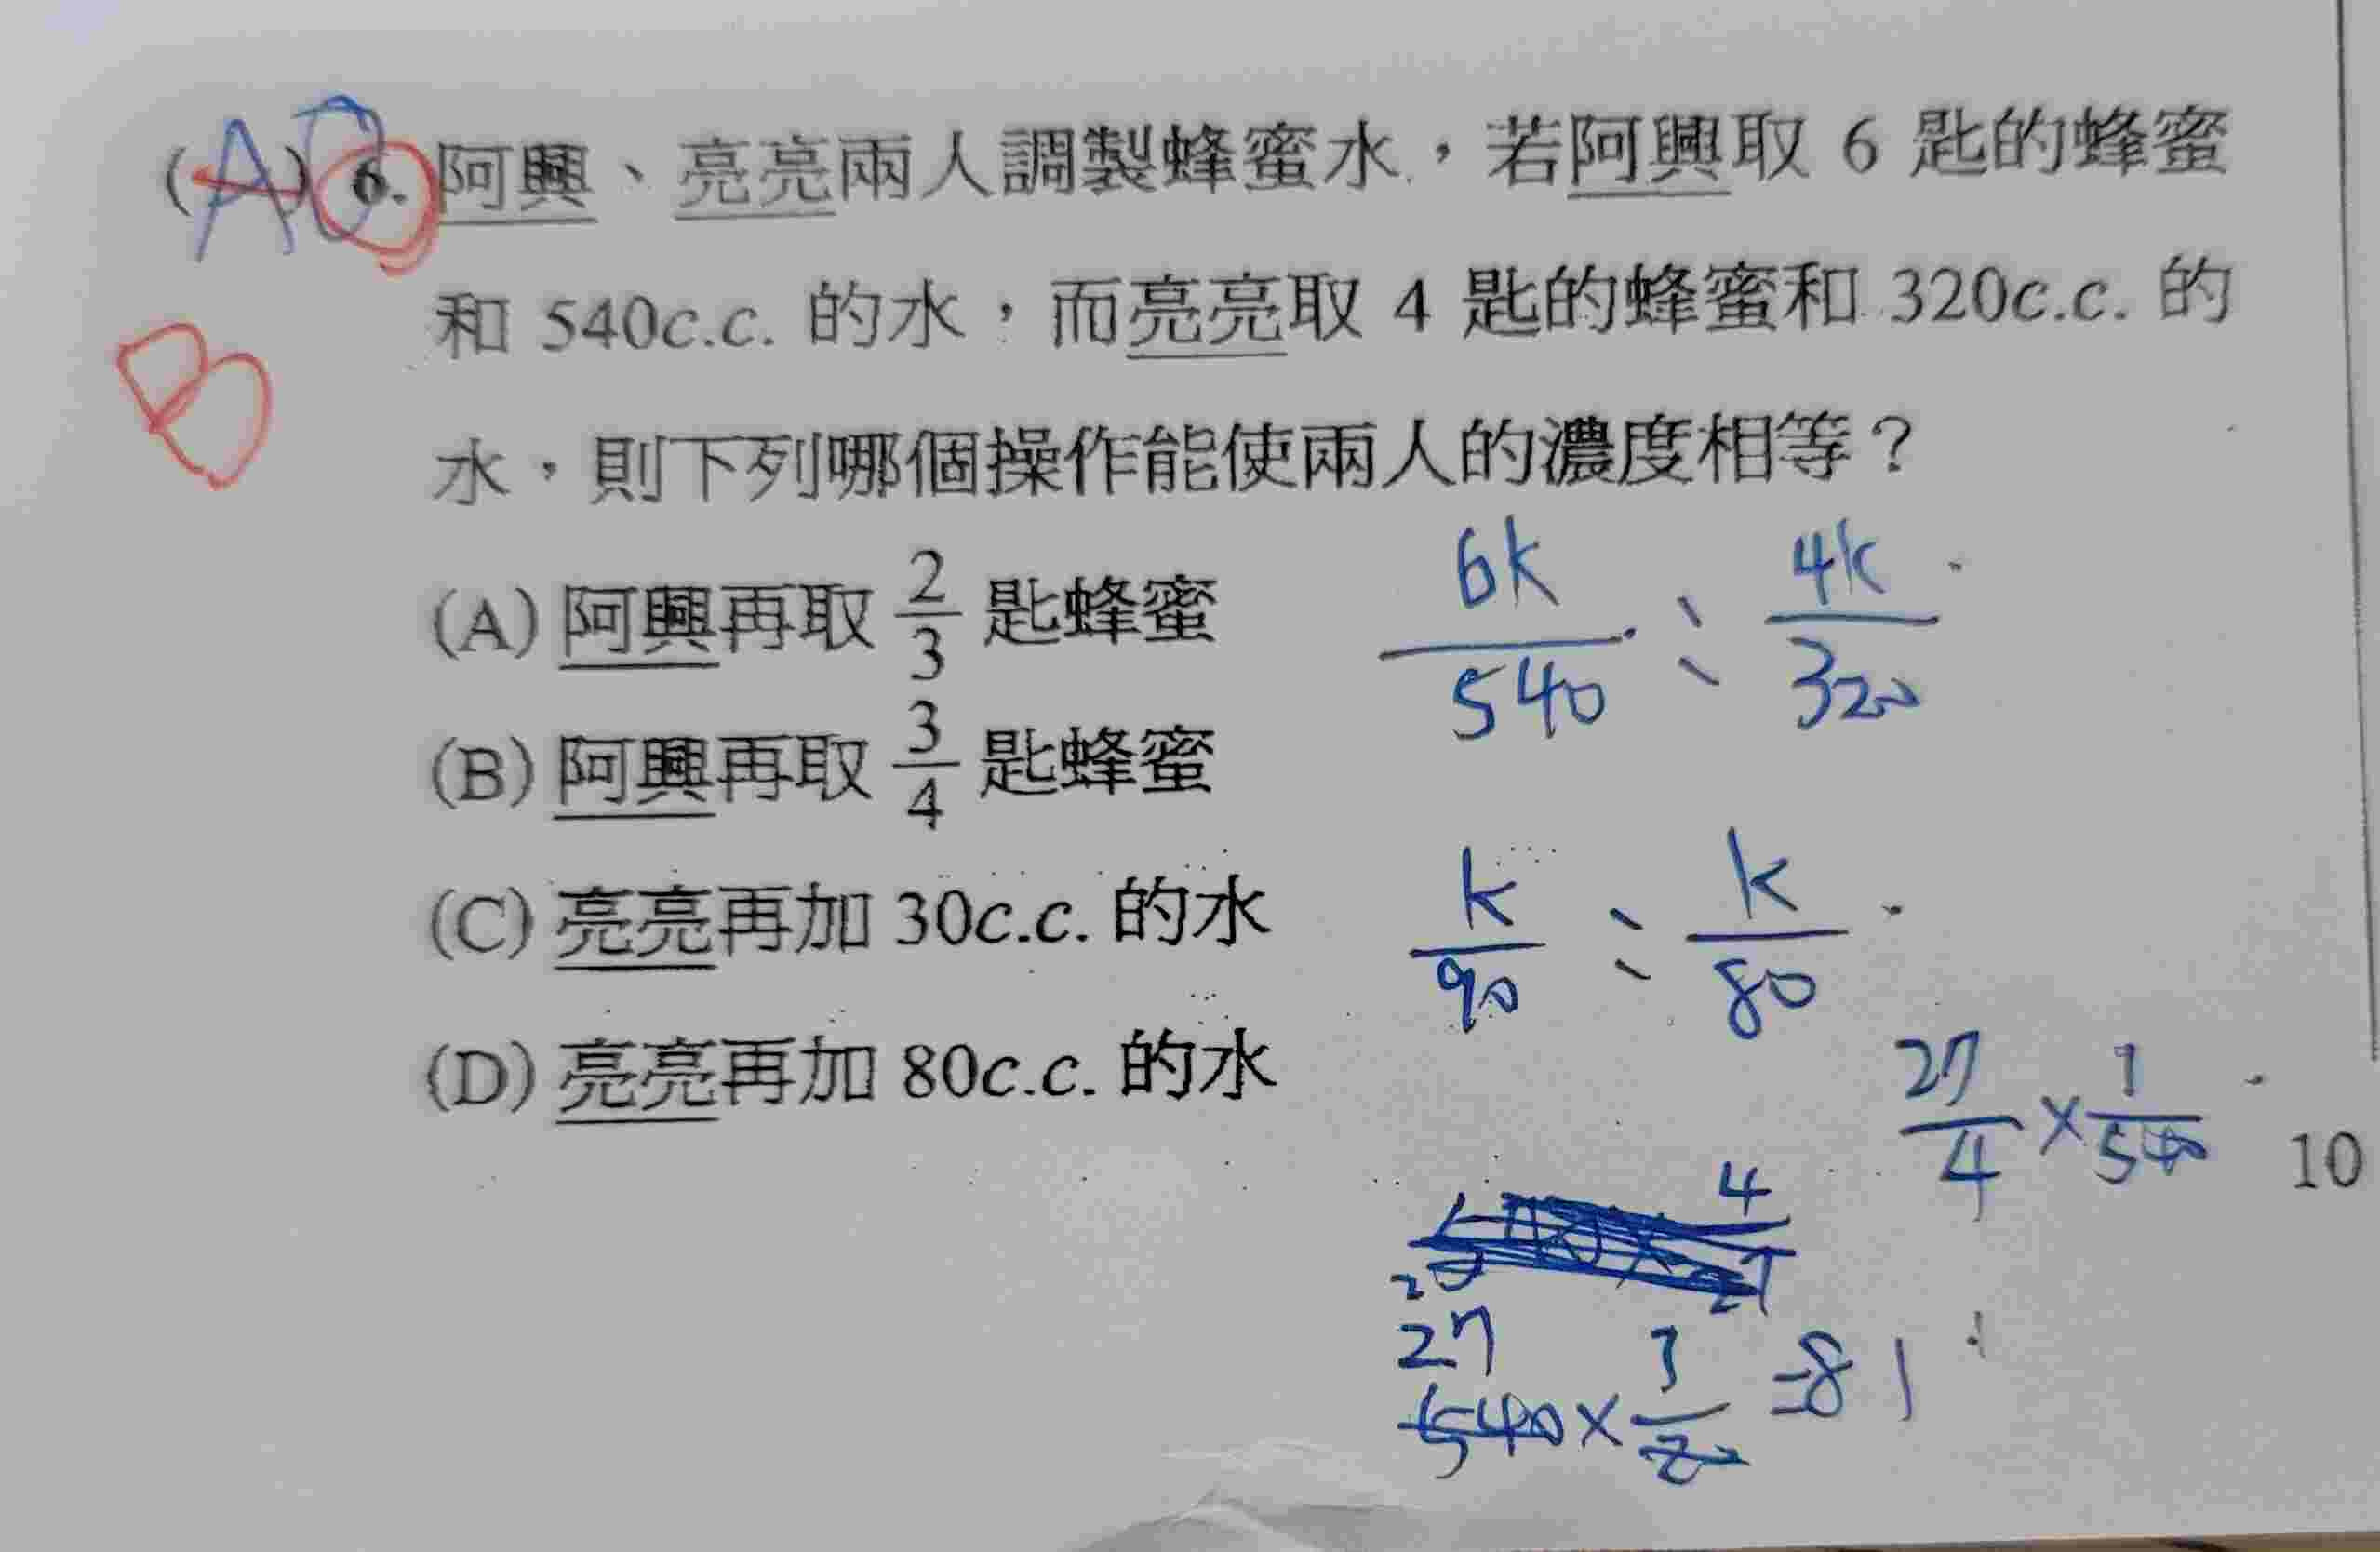 (A) 6. 阿興、亮亮兩人調製蜂蜜水，若阿興取 6 匙的蜂蜜
和 540c.c. 的水，而亮亮取 4 匙的蜂蜜和 320c.c. 的
B
水，則下列哪個操作能使兩人的濃度相等？
(A) 阿興再取 2/3 匙蜂蜜
6k/540 : 4k/320
(B) 阿興再取 3/4 匙蜂蜜
(C) 亮亮再加 30c.c. 的水
k/90 : k/80
(D) 亮亮再加 80c.c. 的水
27/4 × 1/540
10
4
27
540 × 3/20 = 81